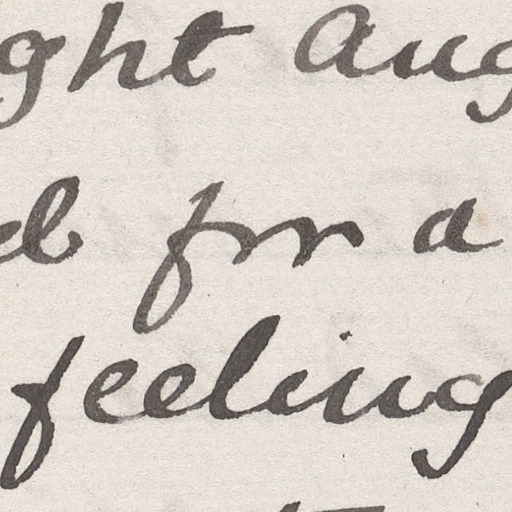 ght Aug
d for a
feeling